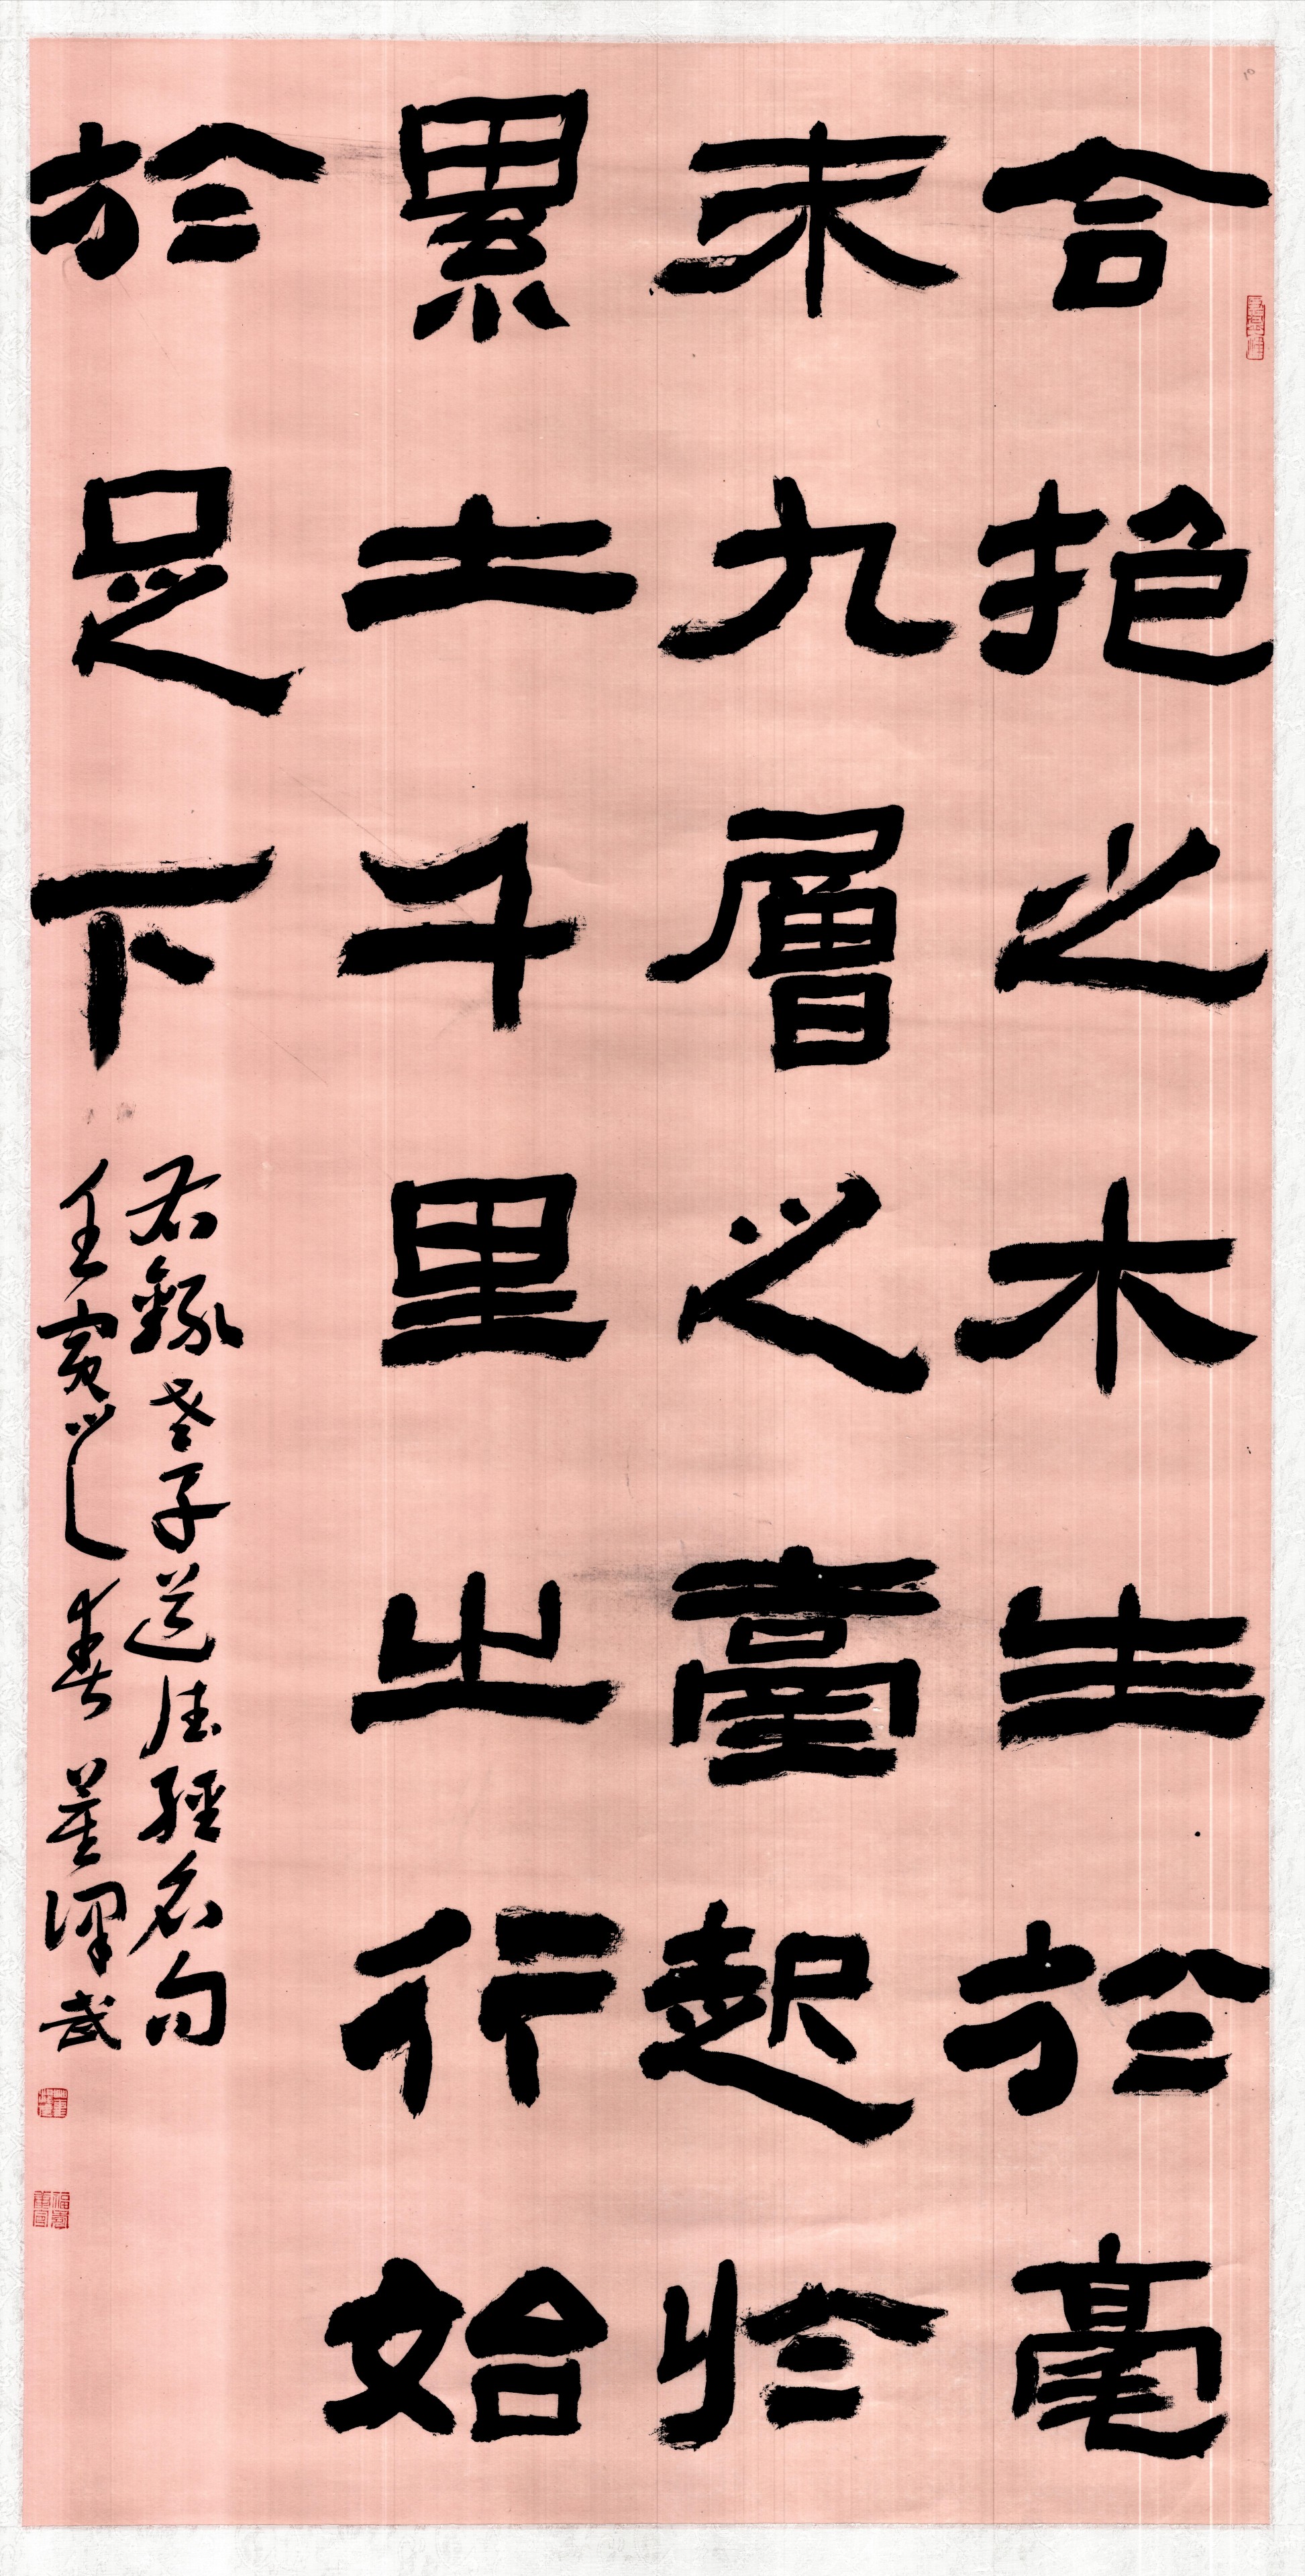 合抱之木生於毫
末九層之臺起於
累土千里之行始
於足下
右錄老子道德經名句
壬寅之春 董澤武